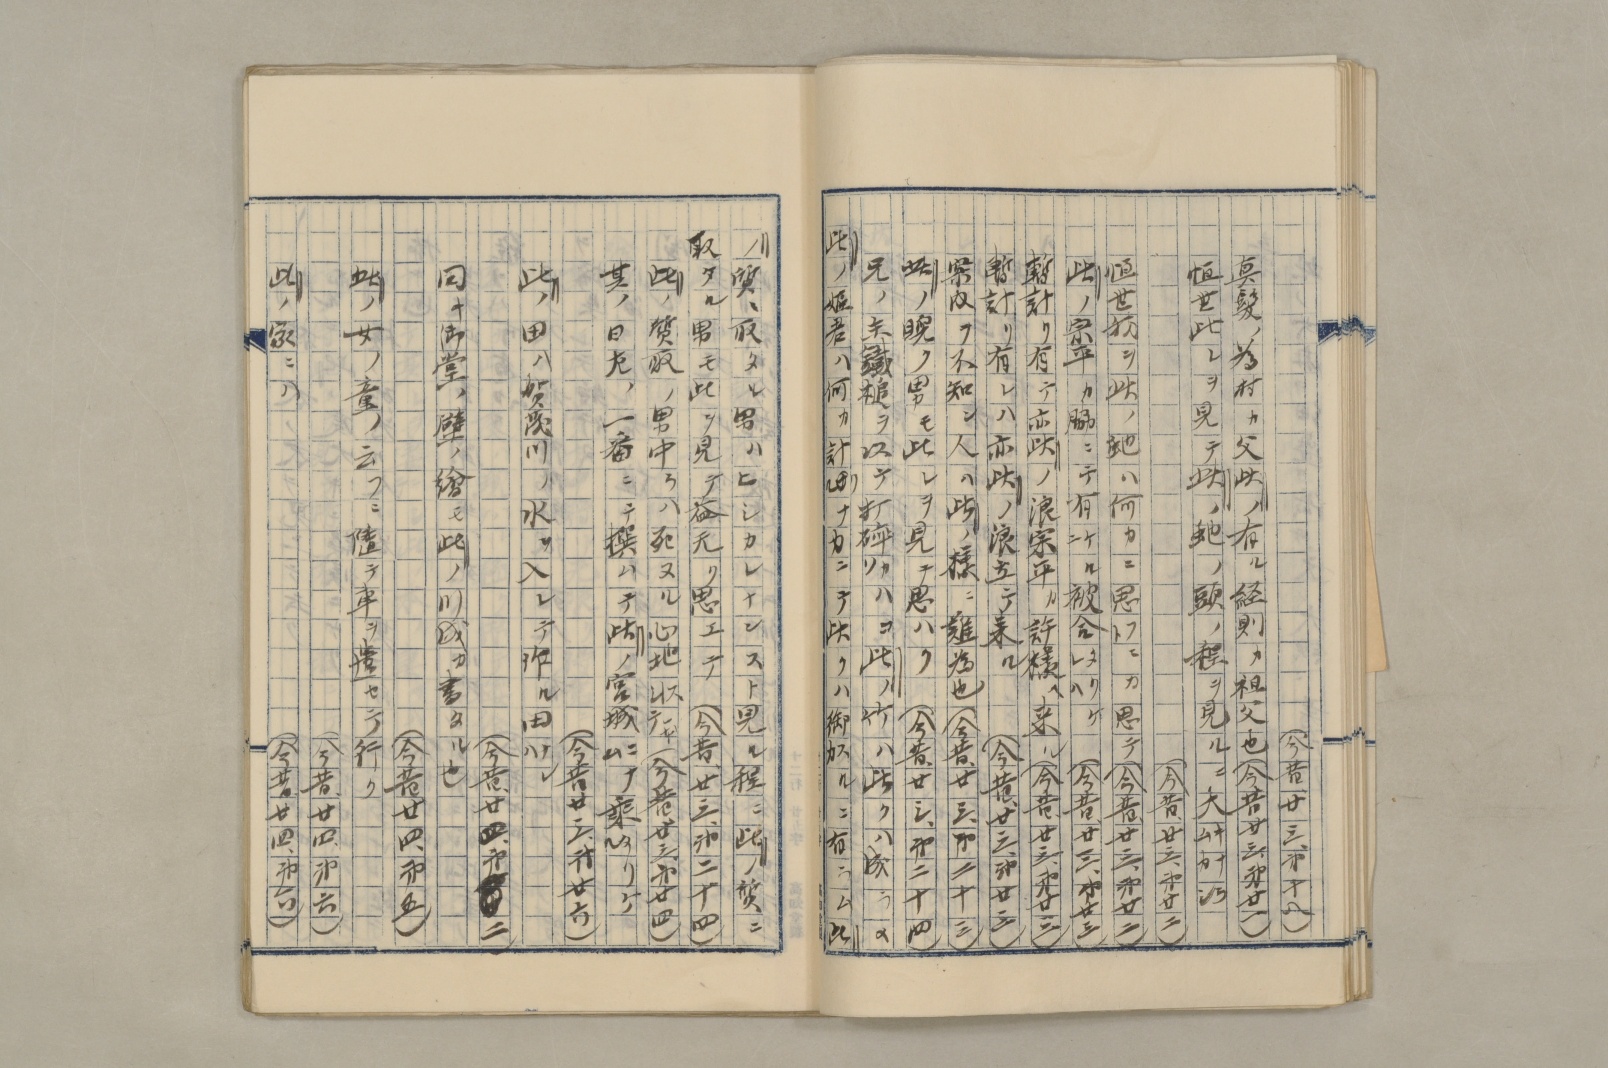 (今昔、廿三、第十八)
真髪ノ為村カ父此ノ有ル経則カ祖父也(今昔廿三、第廿一)
恒世此レヲ見テ此ノ虵ノ頭ノ程ヲ見ルニ大
(今昔、廿三、第廿二)
恒世 此ノ虵ハ何カニ思フニカ思テ(今昔、廿三、第廿二)
此ノ宗平カ脇ニテ有ケル被合タリケレハ(今昔、廿三、第廿三
暫計リ有テ亦此ノ浪宗平カ許様ヘ来ル(今昔、廿三、第廿三)
暫計リ有レハ亦此ノ浪立テ来ル(今昔、廿三、第廿三)
案内ヲ不知ン人ハ此ノ様ニ難為也(今昔、廿三、第二十三)
此ノ睨ク男モ此レヲ見テ思ハク(今昔、廿三、第二十四)
兄ノ主鐵槌ヲ以テ打砕カハコソ此ノ竹ハ此クハ成ラメ
此ノ姫君ハ何カ計ノ力ニテ此クハ御スルニカ有ラム此
ノ質ニ取タル男ハヒシカレナンスト見ル程ニ此ノ質ニ
取タル男モ此ヲ見テ益无ク思エテ(今昔、廿三、第二十四)
此ノ質取ノ男中 ハ死ヌル心地 テ(今昔、廿三、第廿四)
其ノ日左ノ一番ニテ撰ハテ此ノ宮城ニナ乗リケ
(今昔、廿三、第廿六)
此ノ田ハ賀茂川ノ水ヲ入レテ作ル田ハ
(今昔、廿四、第二)
同キ御堂ノ壁ノ絵モ此ノ川成カ書タル也
(今昔、廿四、第五)
此ノ女ノ童ノ云フニ随テ車ヲ遣セテ行ク
(今昔、廿四、第六)
此ノ家ニ
(今昔、廿四、第六)